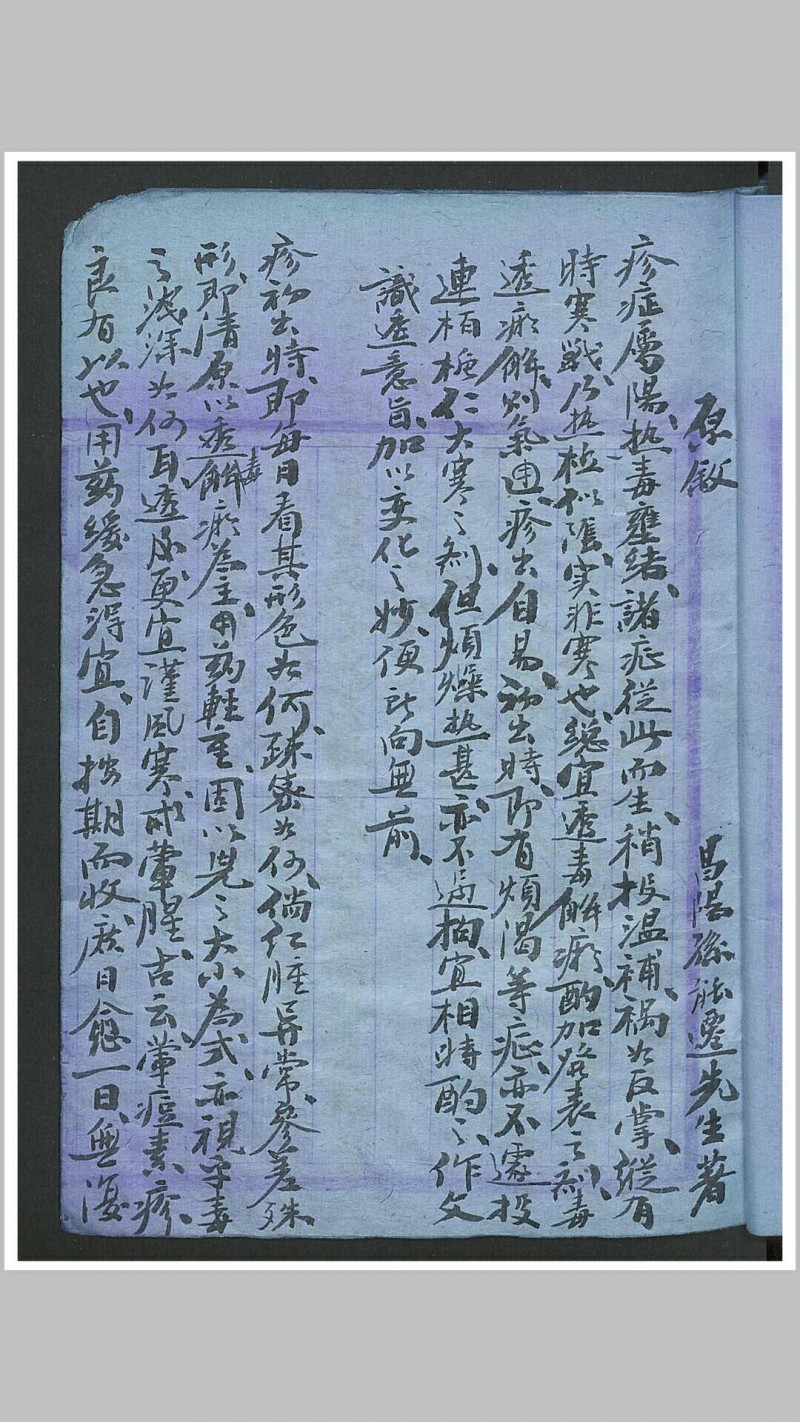 原敘
昌陽孫能遷先生著
疹症屬陽热毒壅结諸症從此而生稍投温補祸如反掌縱有
時寒戰后热極似陰实非寒也総宜透毒解瘀酌加發表之劑毒
透瘀解則氣通疹出自易初出時即有煩渴等症亦不遽投
連栢梔仁大寒之劑但煩燥热甚亦不過拘宜相時酌之作文
識透意旨加以变化之妙便所向無前
疹初出時即每日看其形色如何踈密如何倘红腫异常參差殊
形即清原以透解毒瘀為主用药軽重固以児之大小為式亦視乎毒
之浅深如何耳透后更宜謹風寒戒葷腥古云葷痘素疹
良有以也用药缓急得宜自按期而收庶日愈一日無復